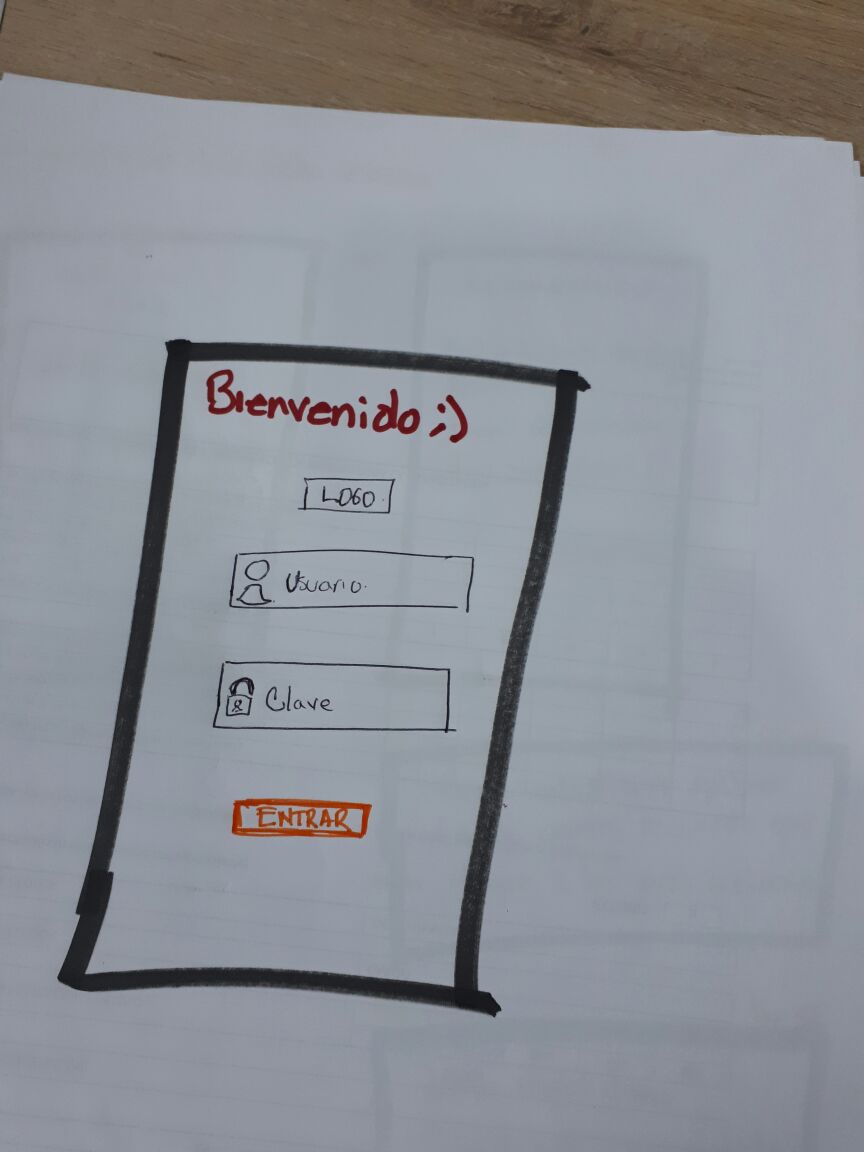 Bienvenido ;)
LOGO
Usuario.
Clave
ENTRAR